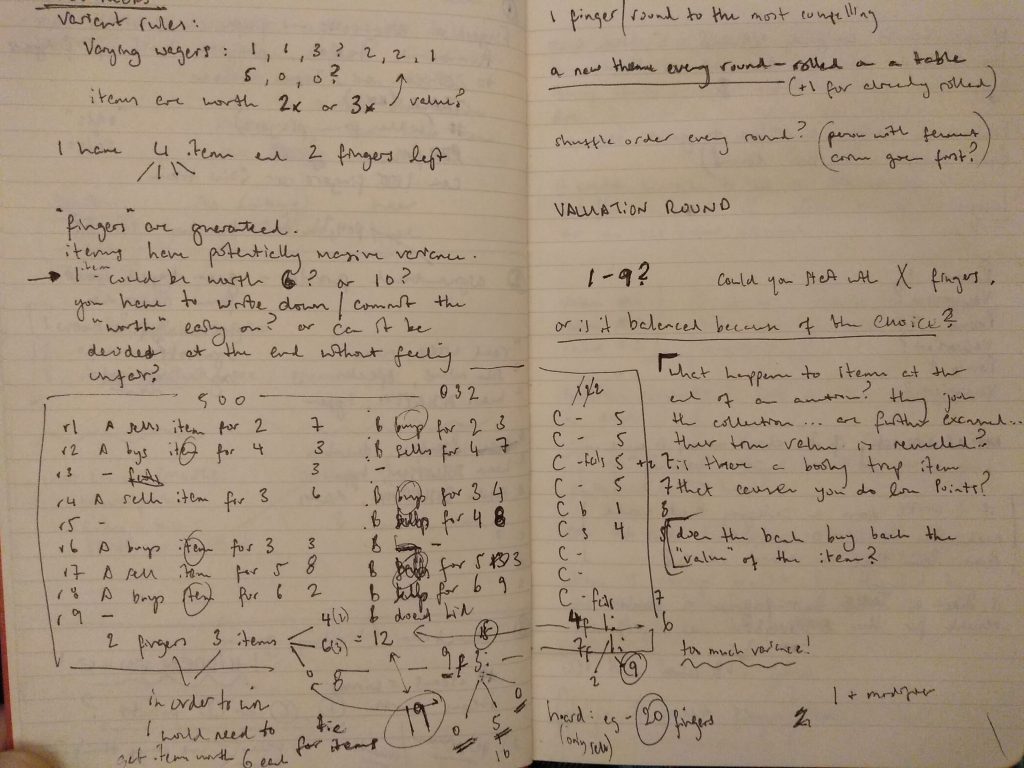 Variant rules:
Varying wagers: 1, 1, 3? 2, 2, 1
5, 0, 0?
items are worth 2x or 3x value?
1 have 4 item and 2 fingers left
"fingers" are guaranteed.
items have potentially massive variance.
→ 1 item could be worth 6? or 10?
you have to write down / commit the
"worth" early on? or can it be
decided at the end without feeling
unfair?
500 032
r1 A sells item for 2 7 B buys for 2 3
r2 A bys item for 4 3 B sells for 4 7
r3 - 3 -
r4 A sells item for 3 6 B buys for 3 4
r5 - B for 4 8
r6 A buys item for 3 3 B -
r7 A sell item for 5 8 B for 5 3
r8 A buys item for 6 2 B for 6 9
r9 - B doesn't bid
2 fingers 3 items
4(2)
6(3) = 12
0 8
18
9f 3i
19
0 5 0
10
in order to win
I would need to tie
get item worth 6 each for items
1 finger/round to the most compelling
a new theme every round - rolled on a table
(+1 for already rolled)
shuffle order every round? (person with fewest
coins goes first?)
VALUATION ROUND
1-9? could you start with X fingers.
or is it balanced because of the choice?
C - 5
C - 5
C - 5 7
C - 5 7
C b 1 3
C s 4
C -
C -
C - 7
4f 1i 6
7f 1i
2 9
What happens to items at the
end of an auction? they join
the collection... are further examined...
their true value is revealed?
is there a booby trap item
that causes you do lose points?
does the bank buy back the
"value" of the item?
too much variance!
hoard: eg - 20 fingers
(only sells)
2
1 + modifier